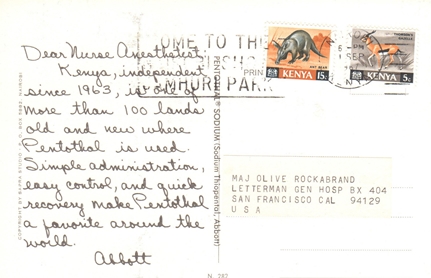 Dear Nurse Anesthetist:
Kenya, independent
since 1963, is one of
more than 100 lands
old and new where
Pentothal is used.
Simple administration,
easy control, and quick
recovery make Pentothal
a favorite around the
world.
Abbott
PENTOTHAL® SODIUM (Sodium Thiopental, Abbott)
OME TO THE
SHO
MHURI PARK
PRIN
ANT BEAR
KENYA 15c
THOMSON'S
GAZELLE
KENYA 5c
SEP
MAJ OLIVE ROCKABRAND
LETTERMAN GEN HOSP BX 404
SAN FRANCISCO CAL 94129
U S A